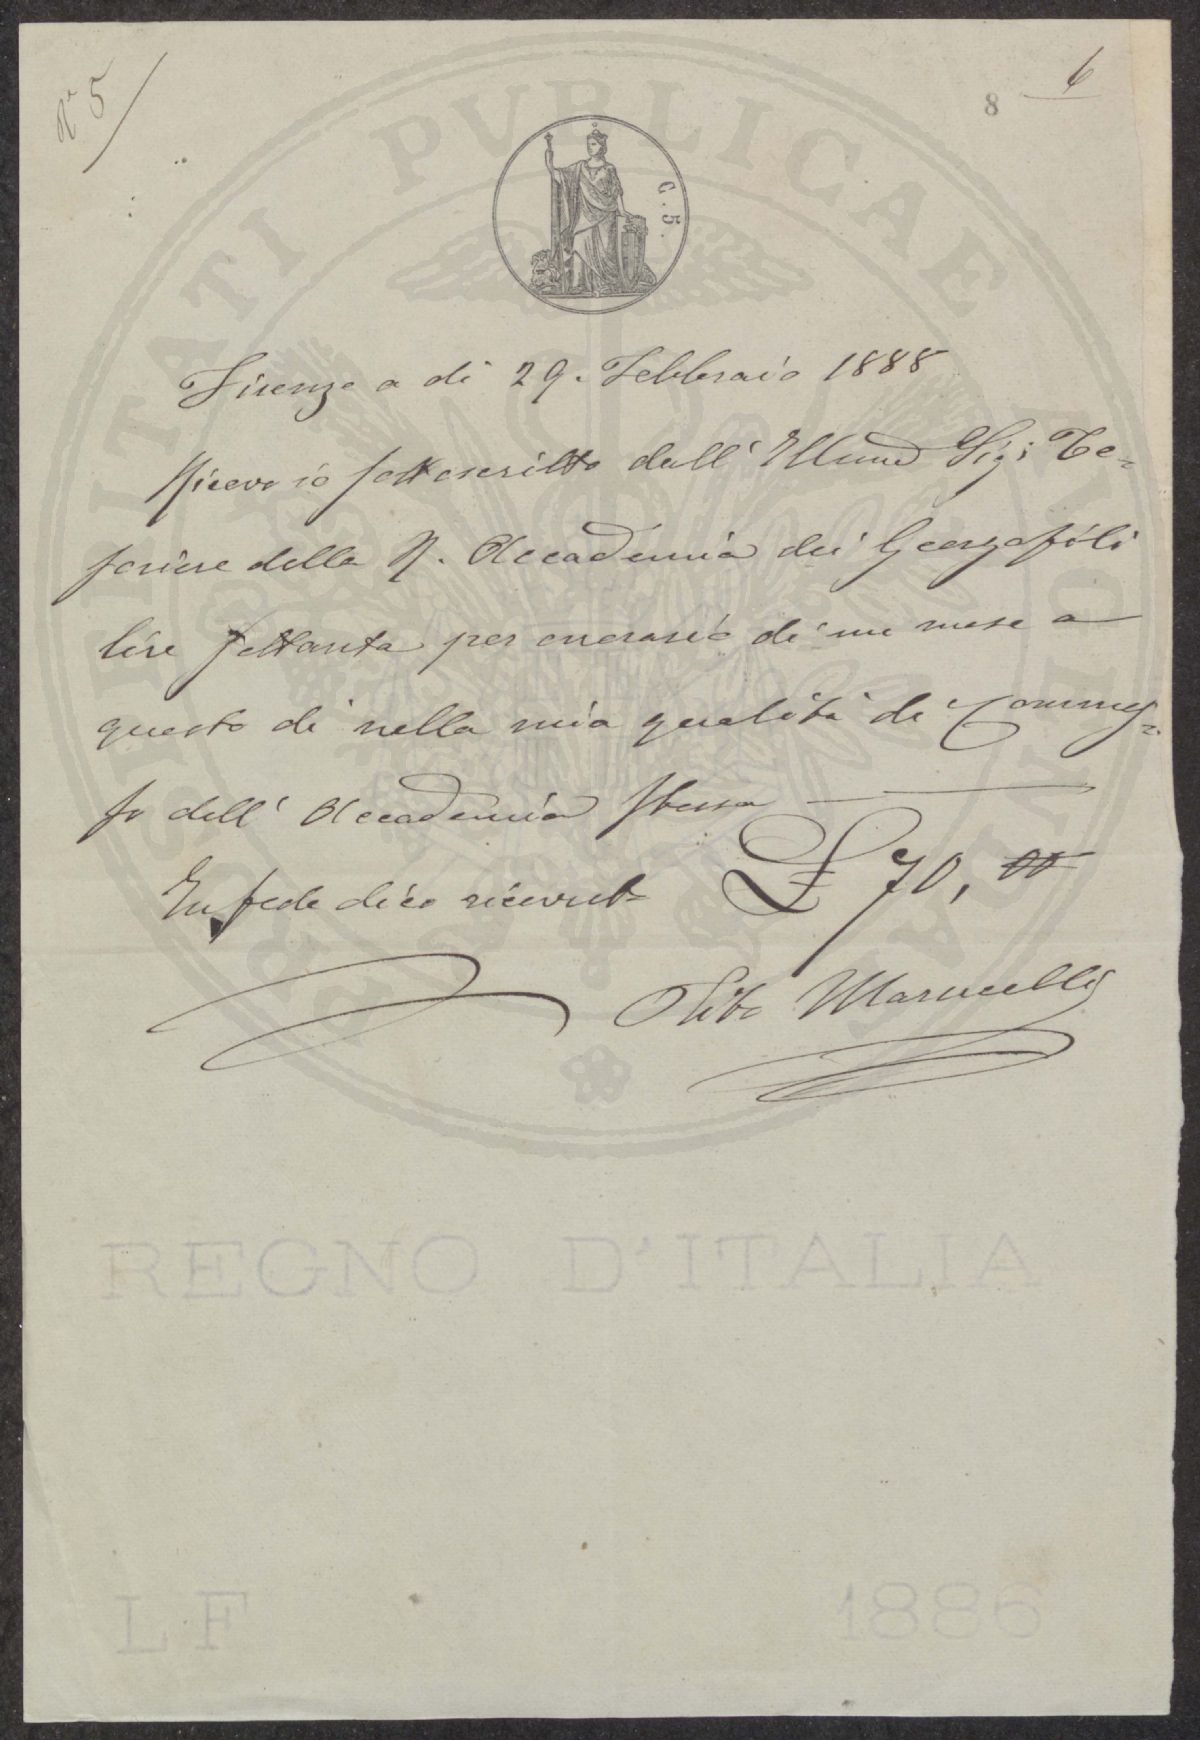 N° 5
8 6
C. 5.
PROSPERITATI PVBLICAE AVGENDAE
Firenze a dì 29. Febbraio 1888
Ricevo io sottoscritto dall' Illmo Sigr Te=
soriere della R. Accademia dei Georgofili
lire settanta per onorario di un mese a
questo dì nella mia qualità di Commes=
so dell' Accademia stessa
In fede dico ricevute £ 70, 00
Tito Marucelli
REGNO D'ITALIA
LF 1886